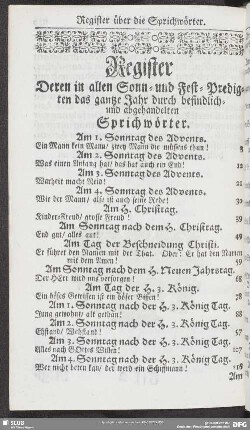 Register über die Sprichwörter.
Register
Deren in allen Sonn- und Fest-Predig-
ten das gantze Jahr durch befindlich-
und abgehandelten
Sprichwörter.
Am 1. Sonntag des Advents.
Ein Mann kein Mann/ zwey Mann die müssens thun!
Am 2. Sonntag des Advents.
Was einen Anfang hat/ das hat auch ein End!
Am 3. Sonntag des Advents.
Warheit macht Neid!
Am 4. Sonntag des Advents.
Wie der Mann/ also ist auch seine Rede!
Am H. Christtag.
Kinder Freud/ grosse Freud!
Am Sonntag nach dem H. Christtag.
End gut/ alles gut!
Am Tag der Beschneidung Christi.
Er führt den Namen mit der That. Oder: Er hat den Namen
mit dem
Am Sonntag nach dem H. Neuen Jahrstag.
Der HErr wird uns versorgen!
Am Tag der H. 3. König.
Ein böses Gewissen ist ein böser
Am 1. Sonntag nach der H. 3. König Tag.
Jung gewohnt, alt gethan! 88
Am 2. Sonntag nach der H. 3. König Tag.
Ehstand/ Wehstand!
Am 3. Sonntag nach der H. 3. König Tag.
Alles nach GOttes Willen! 107
Am 4. Sonntag nach der H. 3. König Tag.
Wer nicht beten kan/ der werd ein Schiffmann! 118
Am
SLUB
DFG